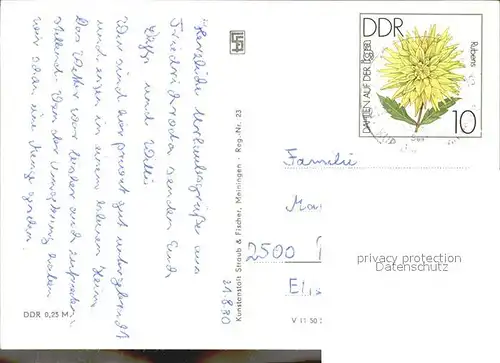 21.8.80
Herzliche Urlaubsgrüße aus
Friedrichroda senden Euch
und Willi
Wir sind hier privat gut untergebracht
und essen in einem kleinen Heim
Das Wetter war bisher auch zufrieden-
stellend. Von der Umgebung haben
wir schon eine Menge gesehen.
DDR 0,25 M
Kunstanstalt Straub & Fischer, Meiningen · Reg.-Nr. 23
DDR
DAHLIEN AUF DER
Rubens
10
Familie
2500
V 11 50
privacy protection
Datenschutz